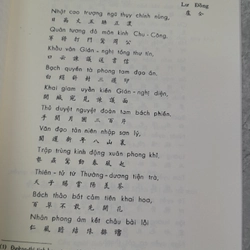 Lư Đồng
盧 仝
Nhật cao trượng ngũ thụy chính nùng,
日 高 丈 五 睡 正 濃
Quân tướng đả môn kinh Chu-Công,
軍 將 打 門 驚 周 公
Khẩu vân Gián-nghị tống thư tín,
口 云 諫 議 送 書 信
Bạch quyên tà phong tam đạo ấn.
白 絹 斜 封 三 道 印
Khai giam uyển kiến Gián-nghị diện,
開 緘 宛 見 諫 議 面
Thủ duyệt nguyệt đoàn tam bách phiến.
手 閱 月 團 三 百 片
Văn đạo tân niên nhập sơn lý,
聞 道 新 年 入 山 裏
Trập trùng kinh động xuân phong khỉ.
蟄 蟲 驚 動 春 風 起
Thiên-tử Thường-dương tiện trà,
天 子 嘗 陽 羨 茶
Bách thảo bất cảm tiên khai hoa,
百 草 不 敢 先 開 花
Nhân phong ám kết châu bài lỗi
仁 風 暗 結 珠